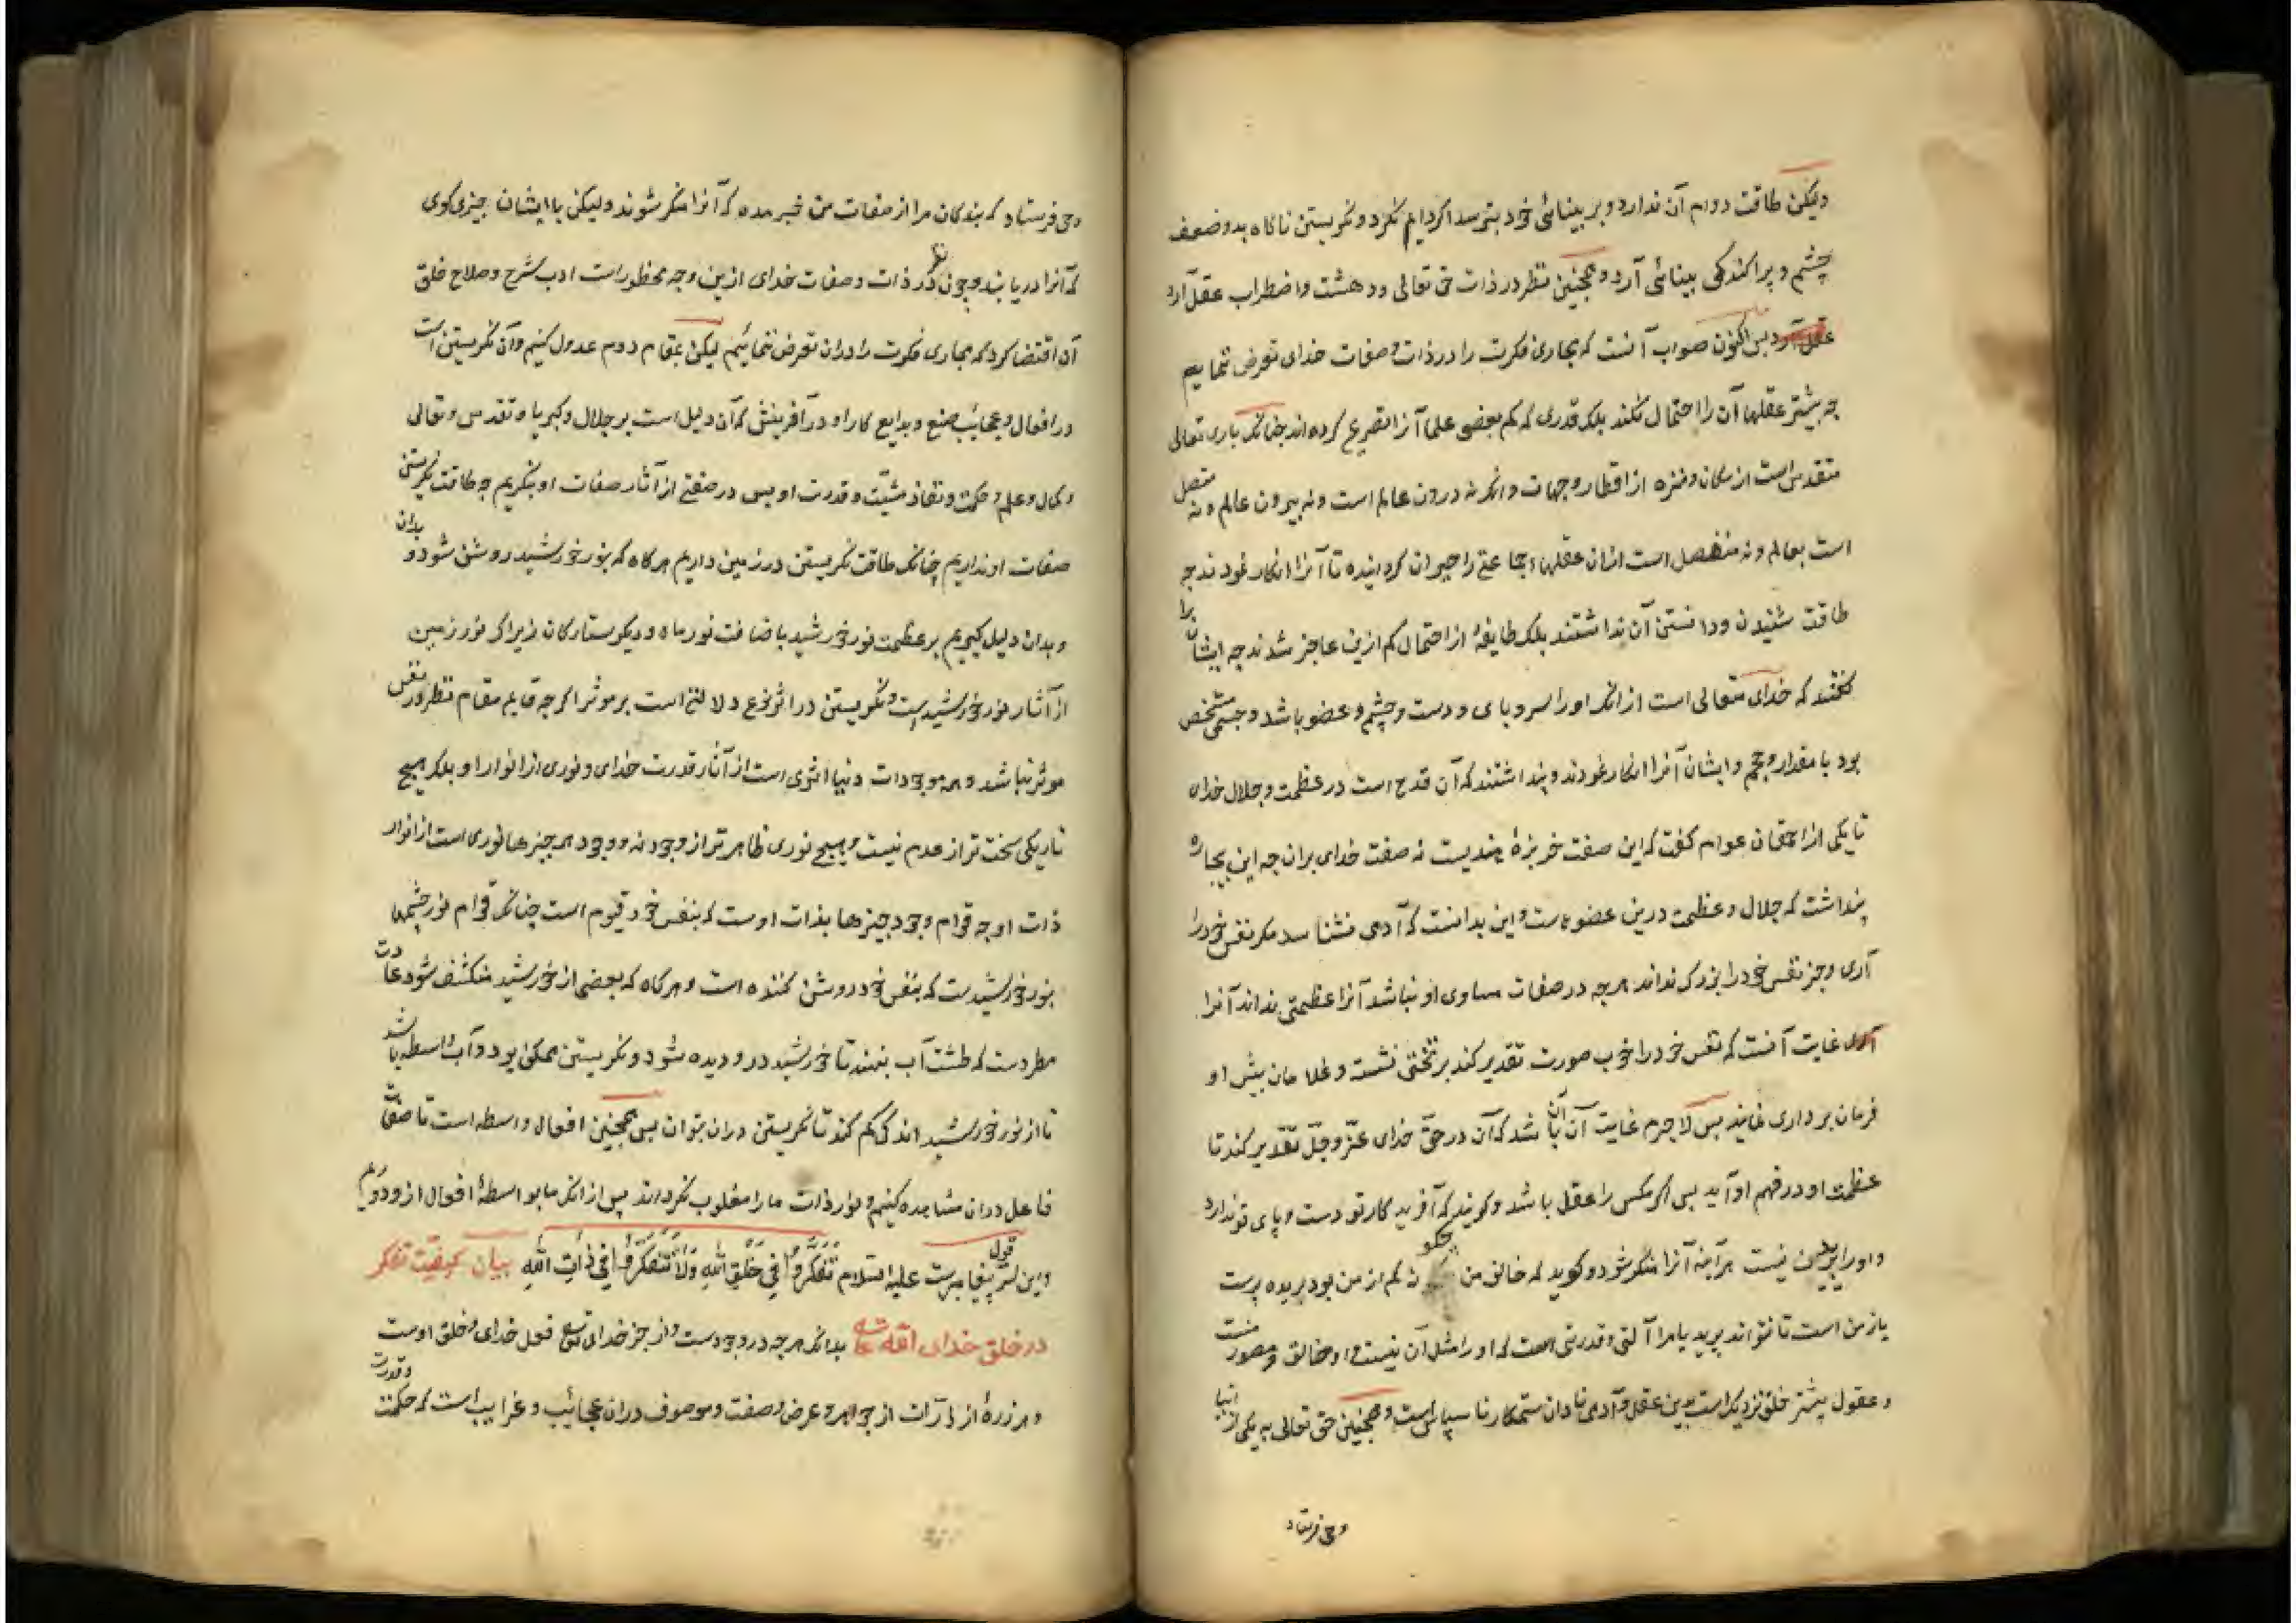 ولیکن طاقت دوام آن ندارد و بر بینائی خود بترسد اگر دایم نکرد و نکریستن ناکاه بدو ضعف
چشم و پراکندکی بینائی آرد و همچنین نظر در ذات حق تعالی ودهشت واضطراب عقل آرد
عقل آرد پس اکنون صواب آنست که بمجاری فکرت را در ذات و صفات خدای تعرض ننماییم
چه بیشتر عقلها آن را احتمال نکند بلکه قدری که کم بعضی علما آنرا تصریح کرده اند چنانکه باری تعالی
متقدس است از مکان و منزه از اقطار و جهات وانکه نه درون عالم است ونه بیرون عالم و نه متصل
است بعالم ونه منفصل است ازان عقلهاء جماعتی را حیران کردانیده تا آنرا انکار نمودند چه
طاقت شنیدن ودانستن آن نداشتند بلکه طایفهٔ از احتمال کم ازین عاجز شدند چه ایشانرا
کفتند که خدای متعالی است ازانکه او را سر و پای و دست و چشم و عضو باشد و جسمی مشخص
بود با مقدار و حجم وایشان آنرا انکار نمودند و پنداشتند که آن قدح است در عظمت و جلال خدای
تا یکی از احمقان عوام کفت که این صفت خربزهٔ هندیست نه صفت خدای بران چه این بیچاره
پنداشت که جلال و عظمت درین عضوهاست و این بدانست که آدمی نشناسد مکر نفس خود را
آری و جز نفس خود را بزرک نداند هرچه در صفات مساوی او نباشد آنرا عظمتی نداند آنرا
آری غایت آنست که نفس خود را خوب صورت تقدیر کند بر تختی نشسته و غلامان پیش او
فرمان برداری نمایند پس لاجرم غایت آن باشد که آن در حق خدای عزّ وجلّ تقدیر کند تا
عظمت او در فهم او آید پس اکر مکس را عقل باشد و کویند که آفریدکار تو دست و پای تو ندارد
واو را پریدن نیست هرآینه آنرا منکر شود و کوید که خالق من چکونه کم از من بود بریده پرست
یا زمن است تا نتواند پرید یا مرا آلتی و قدرتی است که او را مثل آن نیست و او خالق و مصور منست
و عقول بیشتر خلق نزدیک است بدین عقل و آدمی نادان ستمکار ناسپاس است و همچنین حق تعالی به یکی از انبیا
وحی فرستاد
وحی فرستاد که بندکان مرا از صفات من خبر مده که آنرا منکر شوند ولیکن با ایشان چیزی کوی
که آنرا دریابند و چون نظر در ذات و صفات خدای ازین وجه محظور است ادب شرح و صلاح خلق
آن اقتضا کرد که مجاری فکرت را دران تعرض ننمائیم لیکن بمقام دوم عدول کنیم وآن نکریستن است
در افعال و عجائب صنع و بدایع کار او در آفرینش که آن دلیل است بر جلال و کبریا و تقدس و تعالی
و کمال و علم و حکمت و نفاذ مشیّت و قدرت او پس در صفتی از آثار صفات او بنکریم چه طاقت نکریستن
صفات او نداریم چنانکه طاقت نکریستن در زمین داریم هرکاه که بنور خورشید روشن شود و بدان
و بدان دلیل کیریم بر عظمت نور خورشید باضافت نور ماه و دیکر ستارکان زیرا که نور زمین
از آثار نور خورشید است و نکریستن در اثر نوع دلالتی است بر موثر اکرچه قایم مقام نظر در نفس
موثر نباشد و همه موجودات دنیا اثری است از آثار قدرت خدای و نوری از انوار او بلکه هیچ
تاریکی سخت تر از عدم نیست و هیچ نوری ظاهر تر از وجود نه و وجود همه چیزها نوری است از انوار
ذات او چه قوام وجود چیزها بذات اوست که بنفس خود قیوم است چنانکه قوام نور چشمها
بنور خورشیدست که بنفس خود روشن کننده است و هرکاه که بعضی از خورشید منکشف شود عادت
مطردست که طشت آب بنهند تا خورشید درو دیده شود و نکریستن ممکن بود و آب واسطه باشد
تا از نور خورشید اندکی کم کند تا نکریستن دران بتوان پس همچنین افعال واسطه است تا صفات
فاعل دران مشاهده کنیم و نور ذات ما را مغلوب نکرداند پس ازانکه ما بواسطهٔ افعال ازو دوریم
و این سرّ قول پیغامبرست علیه السلام تَفَكَّرُوا فِي خَلْقِ اللهِ وَلَا تَتَفَكَّرُوا فِي ذَاتِ اللهِ بیان کیفیت تفکر
در خلق خدای بدانکه هرچه در وجودست واز جز خدای فعل خدای و خلق اوست
و هر ذرهٔ از ذرات از جواهر و عرض و صفت و موصوف دران عجائب و غرایب است که حکمت و قدرت